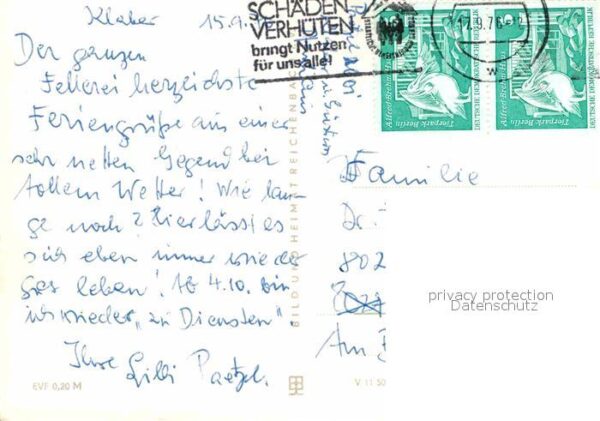 Klaber 15.9.
Der ganzen
Fellerei herzlichste
Feriengrüße aus einer
sehr netten Gegend bei
tollem Wetter! Wie lan-
ge noch? Hier lässt es
sich eben immer wieder
gut leben! Ab 4.10. bin
ich wieder „zu Diensten".
Ihre Lilli Paetzel.
EVF 0,20 M
BILD UND HEIMAT REICHENBACH
V 11 50
SCHÄDEN
VERHÜTEN
bringt Nutzen
für uns alle!
17.9.76
Alfred Brehm
Tierpark Berlin
DEUTSCHE DEMOKRATISCHE REPUBLIK
Alfred Brehm
Tierpark Berlin
DEUTSCHE DEMOKRATISCHE REPUBLIK
Familie
Dr.
802
Am
privacy protection
Datenschutz